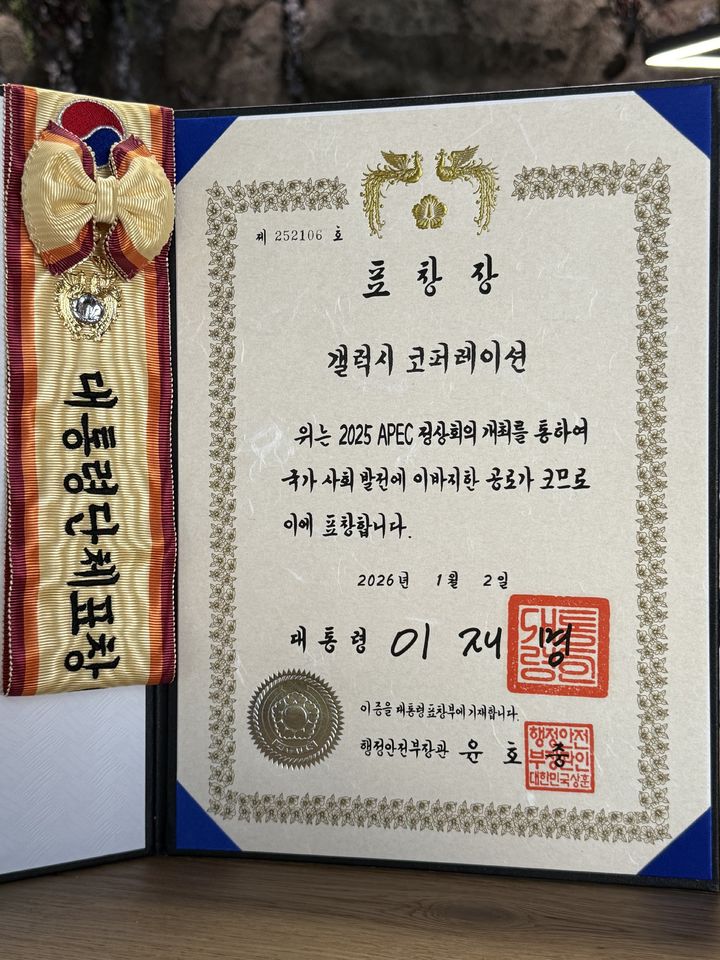 대통령단체표창
제 252106 호
표 창 장
갤럭시 코퍼레이션
위는 2025 APEC 정상회의 개최를 통하여
국가 사회 발전에 이바지한 공로가 크므로
이에 표창합니다.
2026년 1월 2일
대통령 이재명
대통
령의
이 증을 대통령표창부에 기재합니다.
행정안전부장관 윤호중
행정안전
부장관인
대한민국상훈